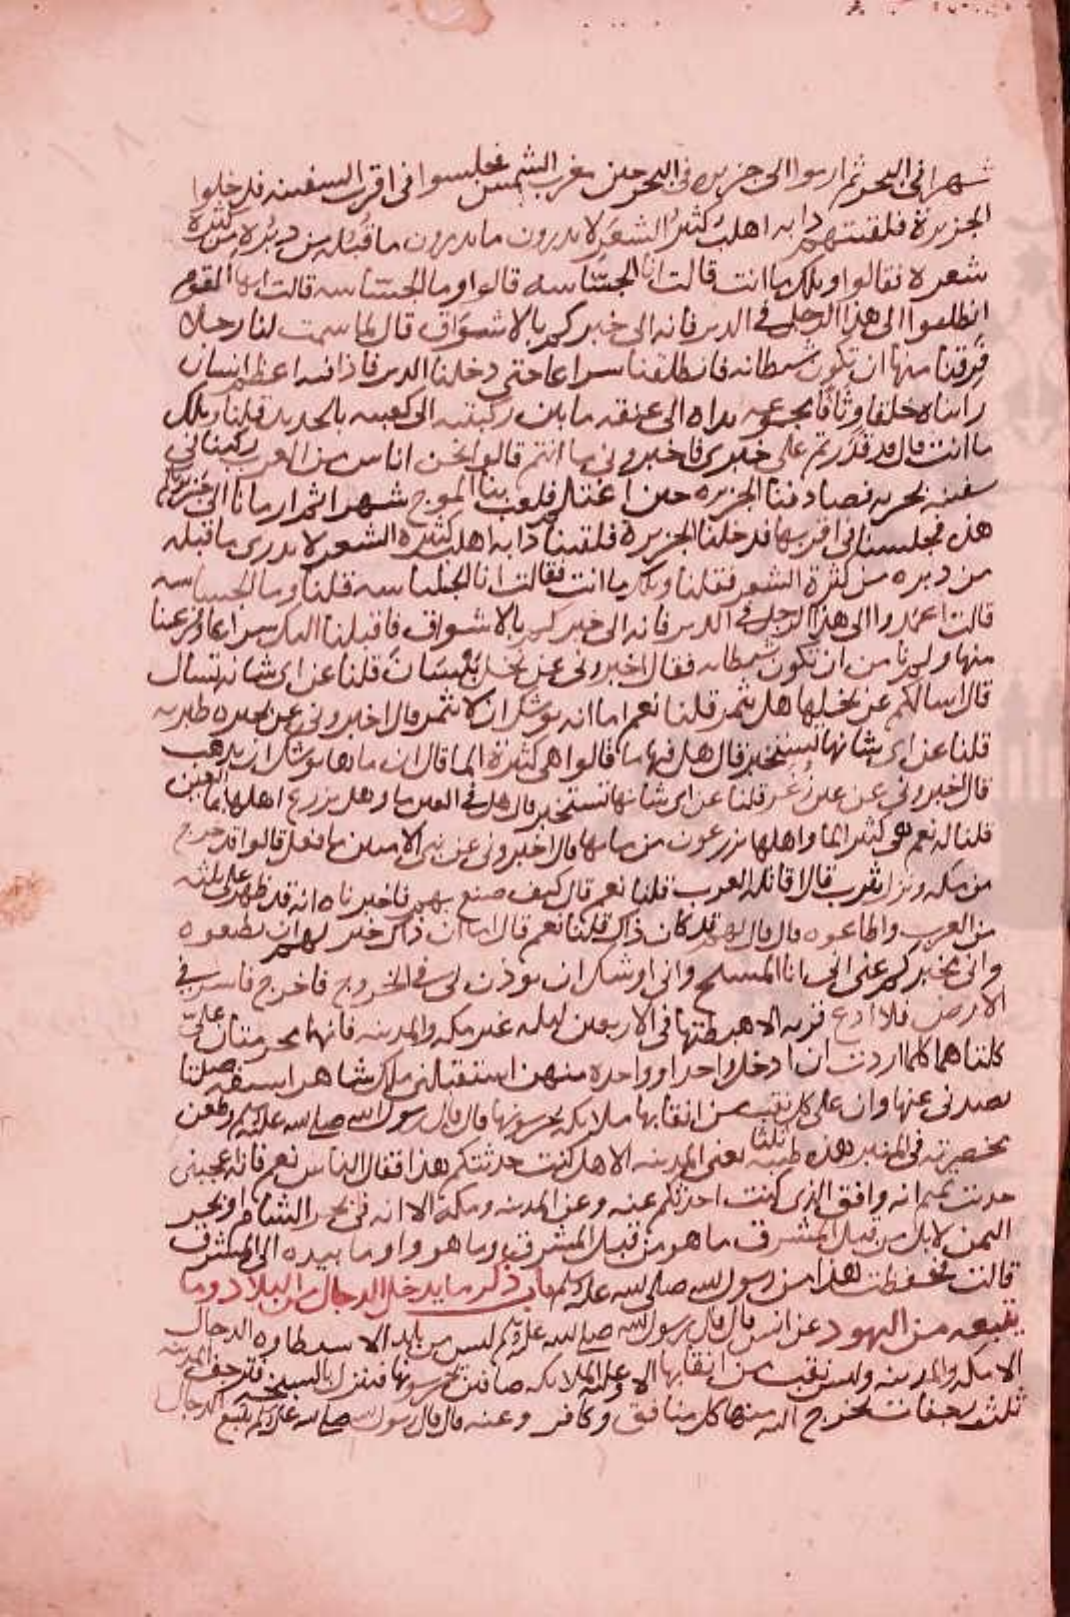 شهرا فى البحر ثم ارسوا الى جزيره فى البحر حين مغرب الشمس فجلسوا فى اقرب السفينه فدخلوا
الجزيرة فلقيتهم دابه اهلب كثير الشعر لا يدرون ما يدرون ما قبله من دبره من كثرة
شعره فقالوا ويلك ما انت قالت انا الجساسه قالوا وما الجساسه قالت ايها القوم
انطلقوا الى هذا الرجل فى الدير فانه الى خبركم بالاشواق قال لما سمت لنا رجلا
فرقنا منها ان تكون شيطانه فانطلقنا سراعا حتى دخلنا الدير فاذا فيه اعظم انسان
رايناه خلقا وثاقا مجموعه يداه الى عنقه ما بين ركبتيه الى كعبيه بالحديد قلنا ويلك
ما انت قال قد قدرتم على خبرى فاخبرونى ما انتم قالوا نحن اناس من العرب ركبنا فى
سفينه بحريه فصادفنا البحر حين اغتلم فلعب بنا الموج شهرا ثم ارمانا الى جزيرتكم
هذه فجلسنا فى اقربها فدخلنا الجزيرة فلقيتنا دابه اهلب كثيره الشعر لا يدرى ما قبله
من دبره من كثرة الشعر فقلنا ويلك ما انت فقالت انا الجساسه قلنا وما الجساسه
قالت اعمدوا الى هذا الرجل فى الدير فانه الى خبركم بالاشواق فاقبلنا اليك سراعا وفزعنا
منها ولم نامن ان تكون شيطانه فقال اخبرونى عن نخل بيسان قلنا عن اى شانه تسال
قال اسالكم عن نخلها هل يثمر قلنا نعم اما انه يوشك ان لا تثمر قال اخبرونى عن بحيره طبريه
قلنا عن اى شانها تستخبر قال هل فيها ما قالوا هى كثيرة الما قال ان ماها يوشك ان يذهب
قال اخبرونى عن عين زغر قلنا عن اى شانها تستخبر قال هل فى العين ما وهل يزرع اهلها بما العين
قلنا له نعم هى كثير الما واهلها يزرعون من مايها قال اخبرونى عن نبى الاميين ما فعل قالوا قد خرج
من مكه ونزل يثرب قال اقاتله العرب قلنا نعم قال كيف صنع بهم فاخبرناه انه قد ظهر على من يليه
من العرب واطاعوه قال قال لهم قد كان ذاك قلنا نعم قال اما ان ذاك خير لهم ان يطيعوه
وانى مخبركم عنى انى انا المسيح وانى اوشك ان يوذن لى فى الخروج فاخرج فاسير فى
الارض فلا ادع قريه الا هبطتها فى اربعين ليله غير مكه والمدينه فانهما محرمتان على
كلتاهما كلما اردت ان ادخل واحدا او واحده منهن استقبلنى ملك شاهر السيف صلتا
يصدنى عنها وان على كل نقب من انقابها ملايكه يحرسونها قال قال رسول الله صلى الله عليه وسلم وطعن
بمخصرته فى المنبر هذه طيبه ثلثا يعنى المدينه الا هل كنت حدثتكم هذا فقال الناس نعم فانه اعجبنى
حديث تميم انه وافق الذى كنت احدثكم عنه وعن المدينه ومكه الا انه فى بحر الشام او بحر
اليمن لا بل من قبل المشرق ما هو من قبل المشرق وما هو واوما بيده الى المشرق
قالت فحفظت هذا من رسول الله صلى الله عليه وسلم باب ذكر ما يدخل الدجال من البلاد وما
يتبعه من اليهود عن انس قال قال رسول الله صلى الله عليه وسلم ليس من بلد الا سيطاوه الدجال
الا مكه والمدينه وليس نقب من انقابها الا وعليه الملايكه صافين تحرسونها فينزل بالسبخه فترجف المدينه
ثلث رجفات تخرج اليه منها كل منافق وكافر وعنه قال قال رسول الله صلى الله عليه وسلم يتبع الدجال